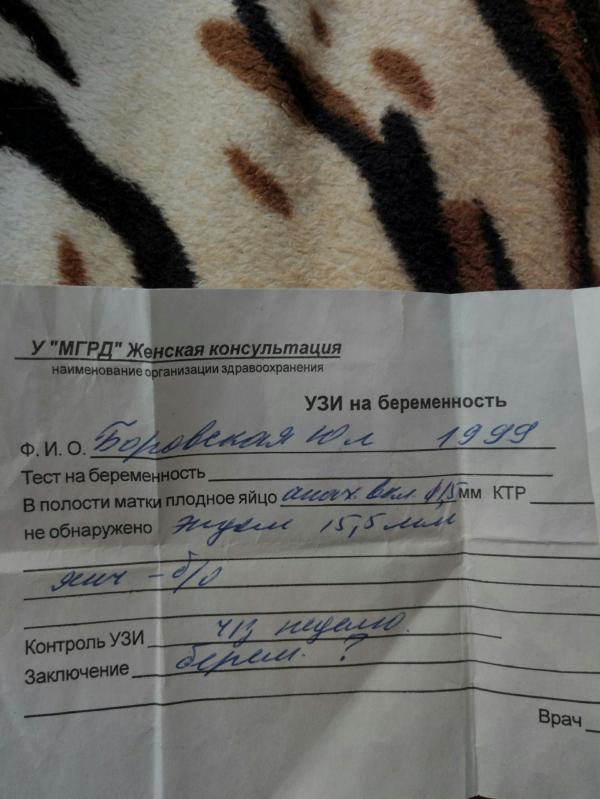 У "МГРД" Женская консультация
наименование организации здравоохранения
УЗИ на беременность
Ф. И. О. Боровская Юл 1999
Тест на беременность
В полости матки плодное яйцо анэх. вкл. мм КТР
не обнаружено эндом 15,5 мм
яич – б/о
Контроль УЗИ ч/з неделю.
Заключение берем. ?
Врач